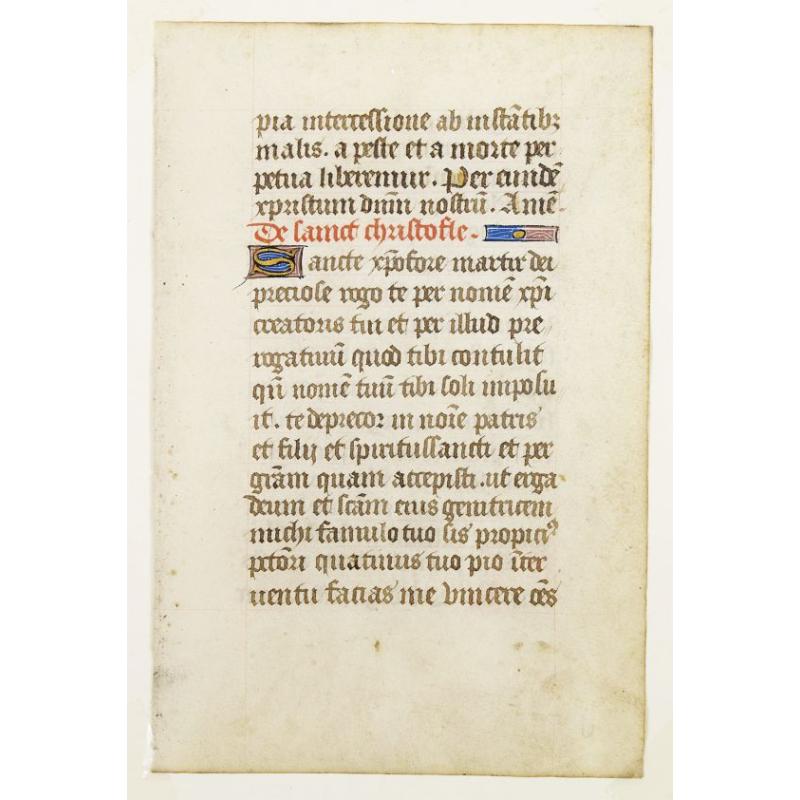 pia intercessione ab instātibꝫ
malis. a peste et a morte per
petua liberemur. Per eundē
xp̄ristum dn̄m nostrū. Amē.
De sainct christofle.
Sancte xp̄ofore martir dei
preciose rogo te per nomē xp̄i
creatoris tui et per illud pre
rogatiuū quod tibi contulit
qn̄ nomē tuū tibi soli imposu
it. te deprecor in noīe patris
et filij et spiritussancti et per
gr̄am quam accepisti. ut erga
deum et sc̄am eius genitricem
michi famulo tuo sis propiciꝰ
pctōri quatinus tuo pio īter
uentu facias me vincere oēs